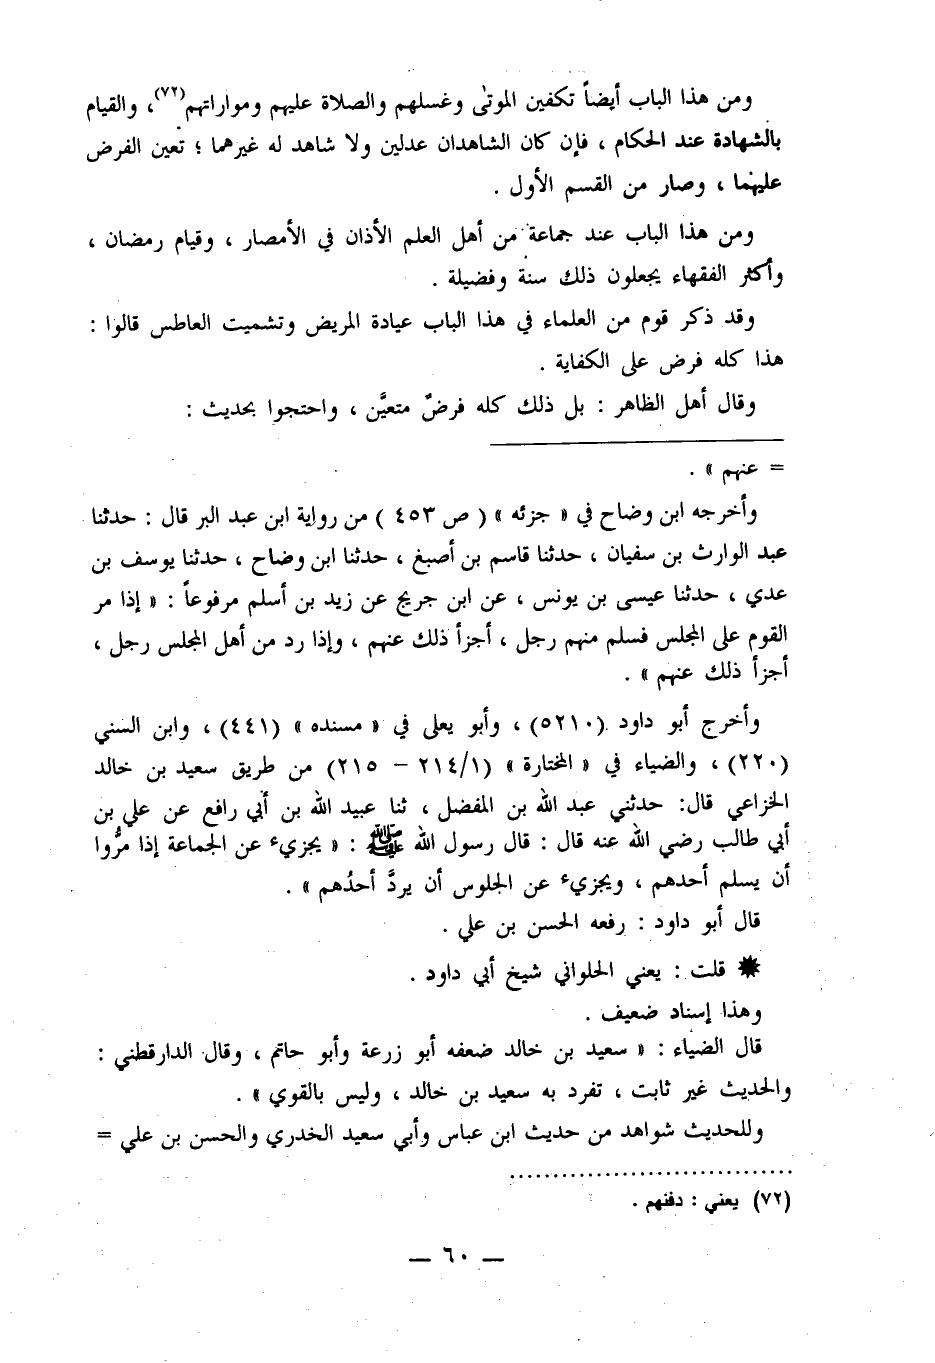 ومن هذا الباب أيضاً تكفين الموتىٰ وغسلهم والصلاة عليهم ومواراتهم(٧٢)، والقيام
بالشهادة عند الحكام ، فإن كان الشاهدان عدلين ولا شاهد له غيرهما ؛ تعين الفرض
عليهما ، وصار من القسم الأول .
ومن هذا الباب عند جماعة من أهل العلم الأذان في الأمصار ، وقيام رمضان ،
وأكثر الفقهاء يجعلون ذلك سنة وفضيلة .
وقد ذكر قوم من العلماء في هذا الباب عيادة المريض وتشميت العاطس قالوا :
هذا كله فرض على الكفاية .
وقال أهل الظاهر : بل ذلك كله فرضٌ متعيَّن ، واحتجوا بحديث :
= عنهم » .
وأخرجه ابن وضاح في « جزئه » ( ص ٤٥٣ ) من رواية ابن عبد البر قال : حدثنا
عبد الوارث بن سفيان ، حدثنا قاسم بن أصبغ ، حدثنا ابن وضاح ، حدثنا يوسف بن
عدي ، حدثنا عيسى بن يونس ، عن ابن جريج عن زيد بن أسلم مرفوعاً : « إذا مر
القوم على المجلس فسلم منهم رجل ، أجزأ ذلك عنهم ، وإذا رد من أهل المجلس رجل ،
أجزأ ذلك عنهم » .
وأخرج أبو داود (٥٢١٠) ، وأبو يعلى في « مسنده » (٤٤١) ، وابن السني
(٢٢٠) ، والضياء في « المختارة » (٢١٤/١ – ٢١٥) من طريق سعيد بن خالد
الخزاعي قال: حدثني عبد الله بن المفضل ، ثنا عبيد الله بن أبي رافع عن علي بن
أبي طالب رضي الله عنه قال : قال رسول الله ﷺ : « يجزيء عن الجماعة إذا مرُّوا
أن يسلم أحدهم ، ويجزيء عن الجلوس أن يردَّ أحدُهم » .
قال أبو داود : رفعه الحسن بن علي .
✸ قلت : يعني الحلواني شيخ أبي داود .
وهذا إسناد ضعيف .
قال الضياء : « سعيد بن خالد ضعفه أبو زرعة وأبو حاتم ، وقال الدارقطني :
والحديث غير ثابت ، تفرد به سعيد بن خالد ، وليس بالقوي » .
وللحديث شواهد من حديث ابن عباس وأبي سعيد الخدري والحسن بن علي =
(٧٢) يعني : دفنهم .
— ٦٠ —